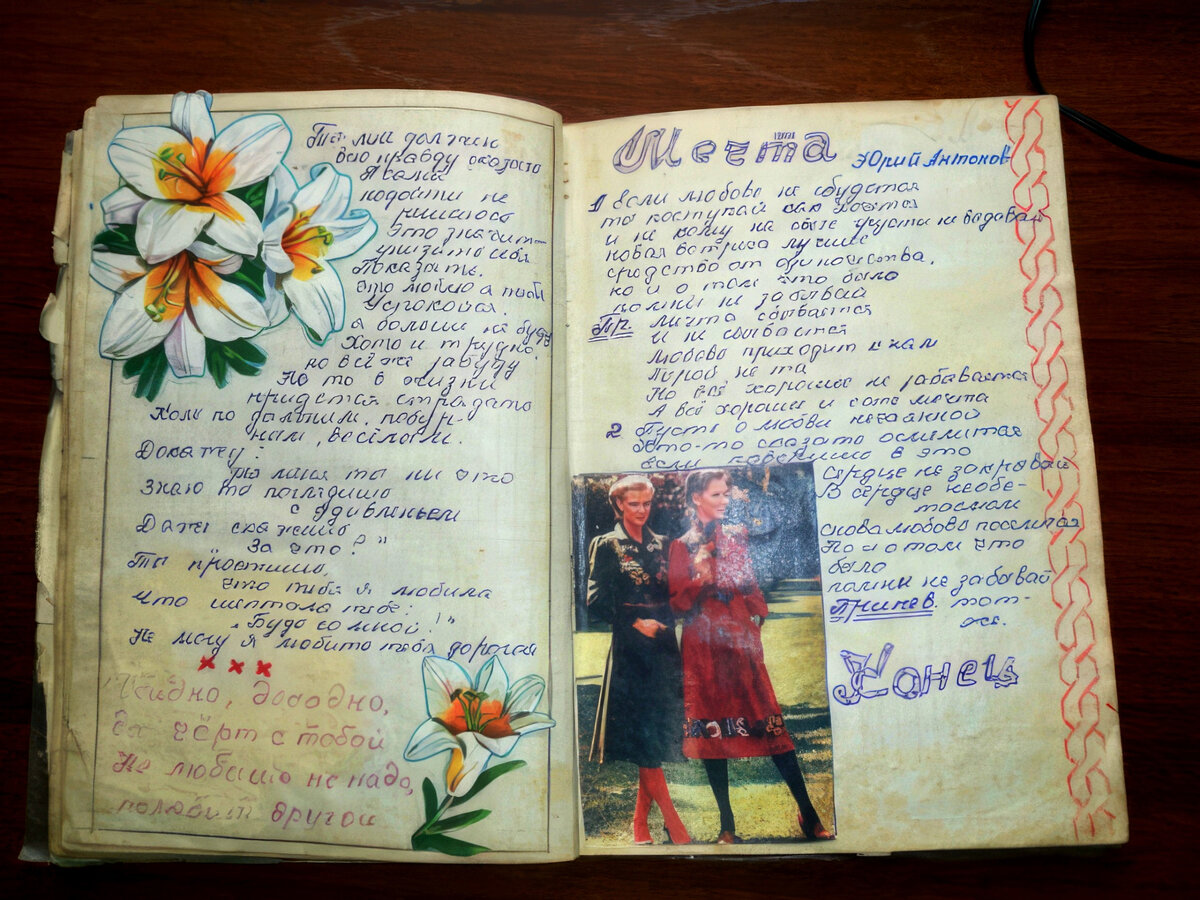 должен
всю правду сказать
Я сама
подойти не
решаюсь
Это значит
унизить себя
Показать,
что люблю я тебя
Успокойся.
я больше не буду
Хоть и трудно,
но всё же забуду
Но то в жизни
придётся страдать
дальним, повер-
нам, весёлым.
Докажу!
знаю ты поглядишь
с удивленьем
Даже скажешь
За что?"
Ты простишь,
что тебя я любила
Что шептала тебе:
"Будь со мной!"
Не могу я любить тебя дорогая
х х х
Обидно, досадно,
чёрт с тобой
Не любишь не надо,
полюбит другой
Мечта
Юрий Антонов
1 Если любовь не сбудется
ты поступай как хочется
и не кому на свете грусти не выдавай
новая встреча лучшее
средство от одиночества,
но и о том что было
помни не забывай
Пр. Мечта сбывается
и не сбывается
Любовь приходит к нам
Порой не та
Но всё хорошее не забывается
А всё хорошее и есть мечта
2 Пусть о любви негаданной
Кто-то сказать осмелится
если поверишь в это
Сердце не закрывай
В сердце необе-
снова любовь поселится
Но и о том что
было
помни не забывай
Припев. тот-
же.
Конец